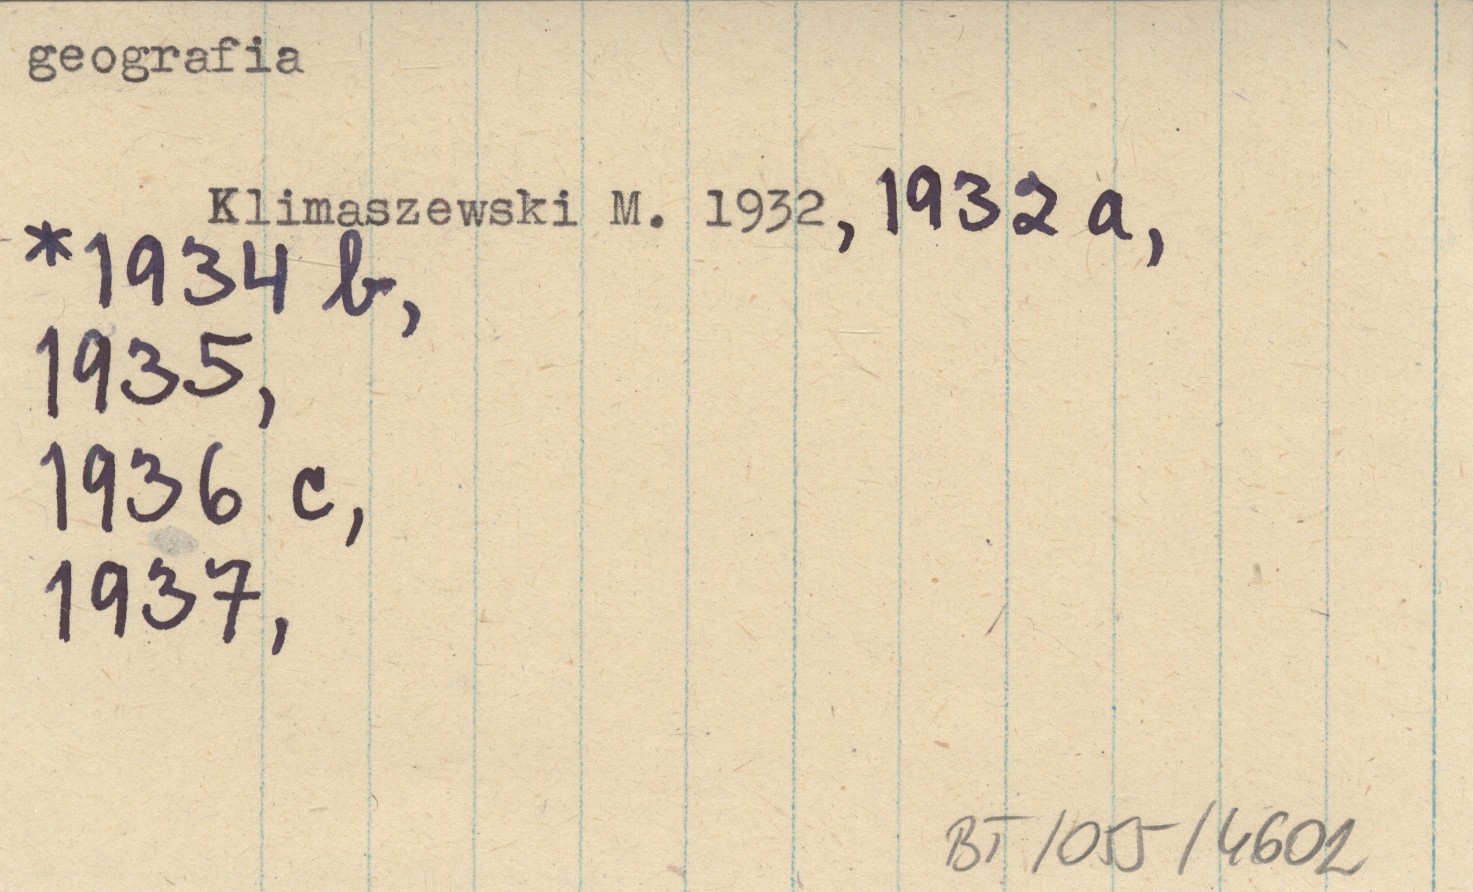 geografia
Klimaszewski M. 1932, 1932 a,
*1934 b,
1935,
1936 c,
1937,
BT/055/4602